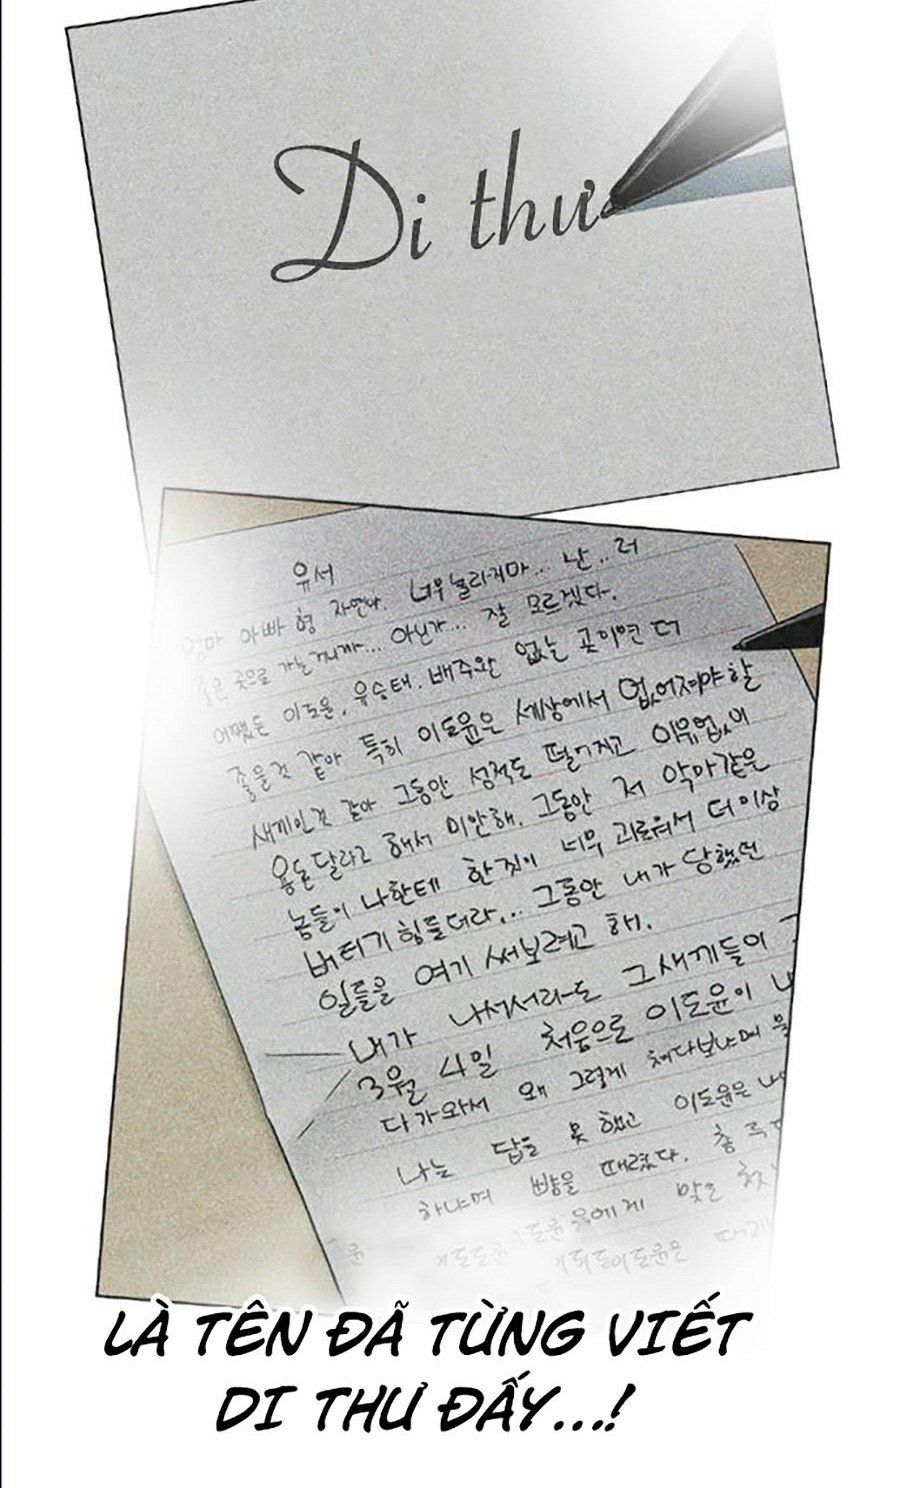 Di thư
유서
엄마 아빠 형 자연아. 너무 놀라지마... 난.. 더
좋은 곳으로 가는거니까... 아닌가... 잘 모르겠다.
어쨌든 이도윤, 유승태, 배주완 없는 곳이면 더
좋을것 같아 특히 이도윤은 세상에서 없어져야할
새끼인것 같아 그동안 성적도 떨어지고 이유없이
용돈달라고 해서 미안해. 그동안 저 악마같은
놈들이 나한테 한짓이 너무 괴로워서 더이상
버티기 힘들더라... 그동안 내가 당했던
일들을 여기 써보려고 해.
내가 나서서라도 그새끼들이
3월 4일 처음으로 이도윤이
다가와서 왜 그렇게 쳐다보냐며
나는 답을 못 했고 이도윤은
하냐며 뺨을 때렸다.
에게 맞은
이도윤은
LÀ TÊN ĐÃ TỪNG VIẾT
DI THƯ ĐẤY...!